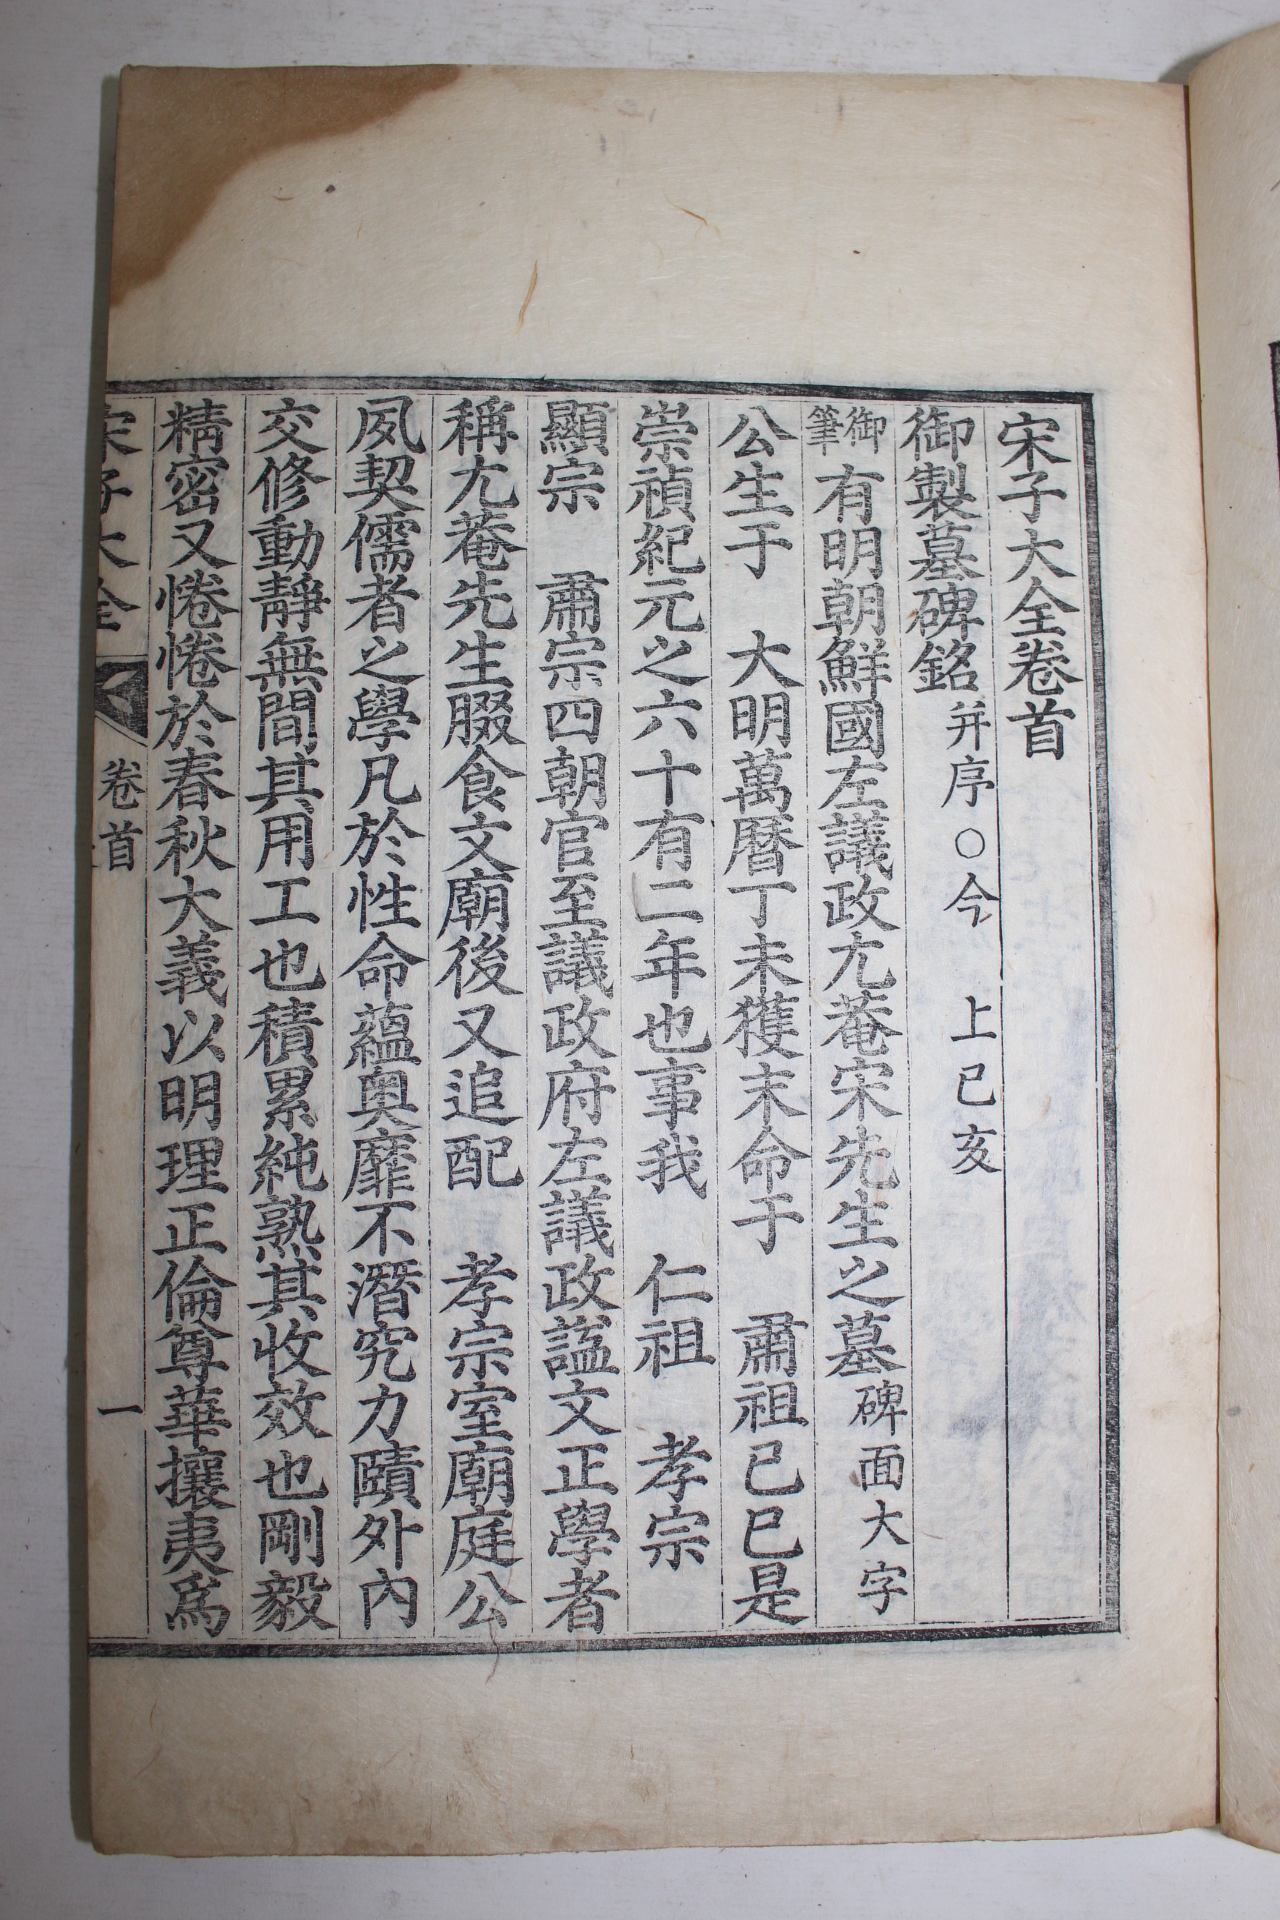 宋子大全卷首
御製墓碑銘并序○今 上己亥
御筆有明朝鮮國左議政尤菴宋先生之墓碑面大字
公生于 大明萬曆丁未獲末命于 肅祖己巳是
崇禎紀元之六十有二年也事我 仁祖 孝宗
顯宗 肅宗四朝官至議政府左議政諡文正學者
稱尤菴先生腏食文廟後又追配 孝宗室廟庭公
夙契儒者之學凡於性命蘊奧靡不潛究力賾外內
交修動靜無間其用工也積累純熟其收效也剛毅
精密又惓惓於春秋大義以明理正倫尊華攘夷爲
宋子大全 卷首 一